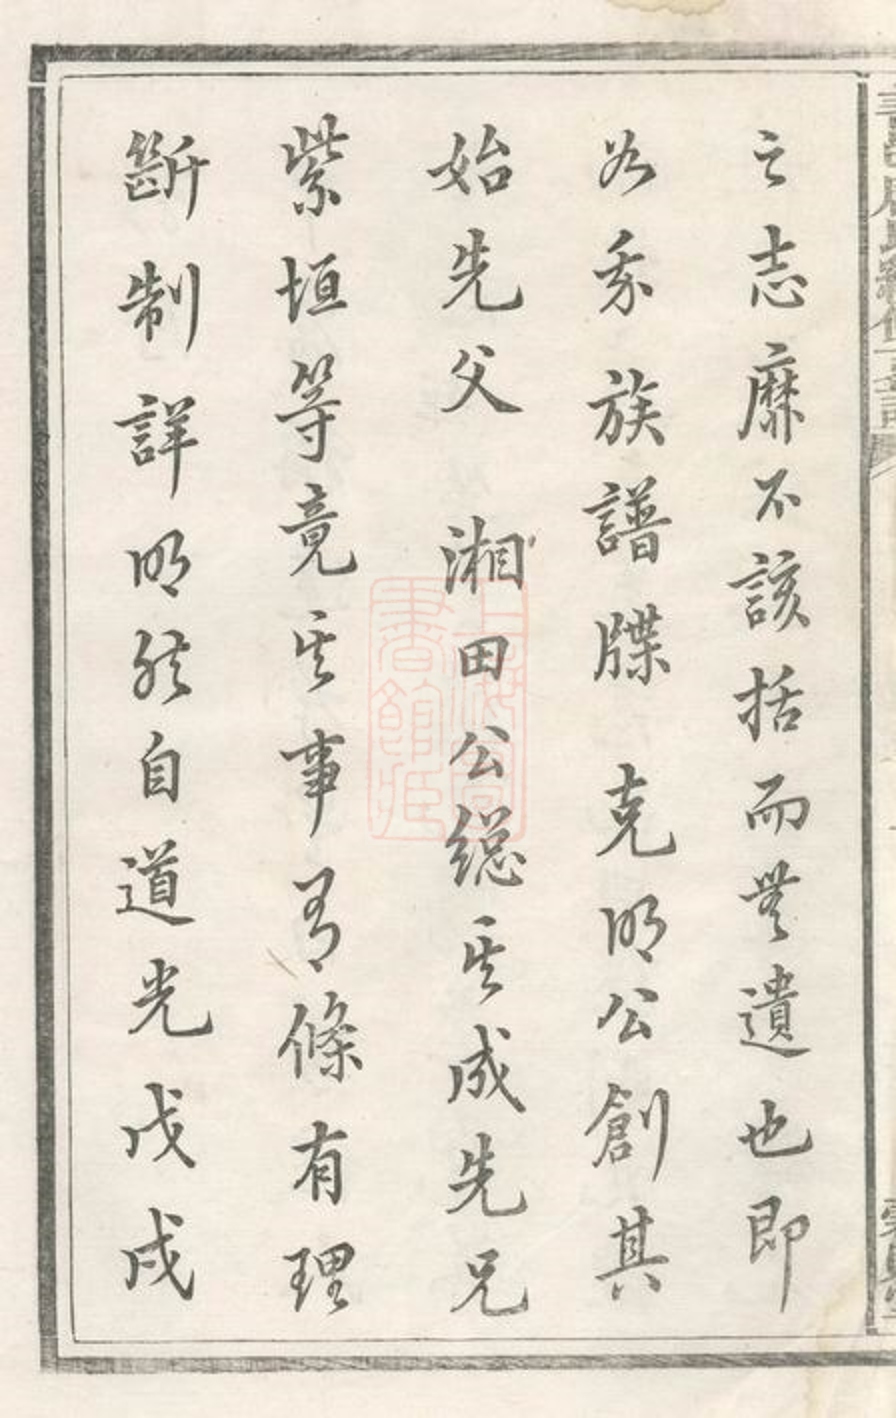 之志靡不該括而無遺也即
如我族譜牒 克明公創其
始先父 湘田公總其成先兄
紫垣等竟其事有條有理
斷制詳明然自道光戊戌